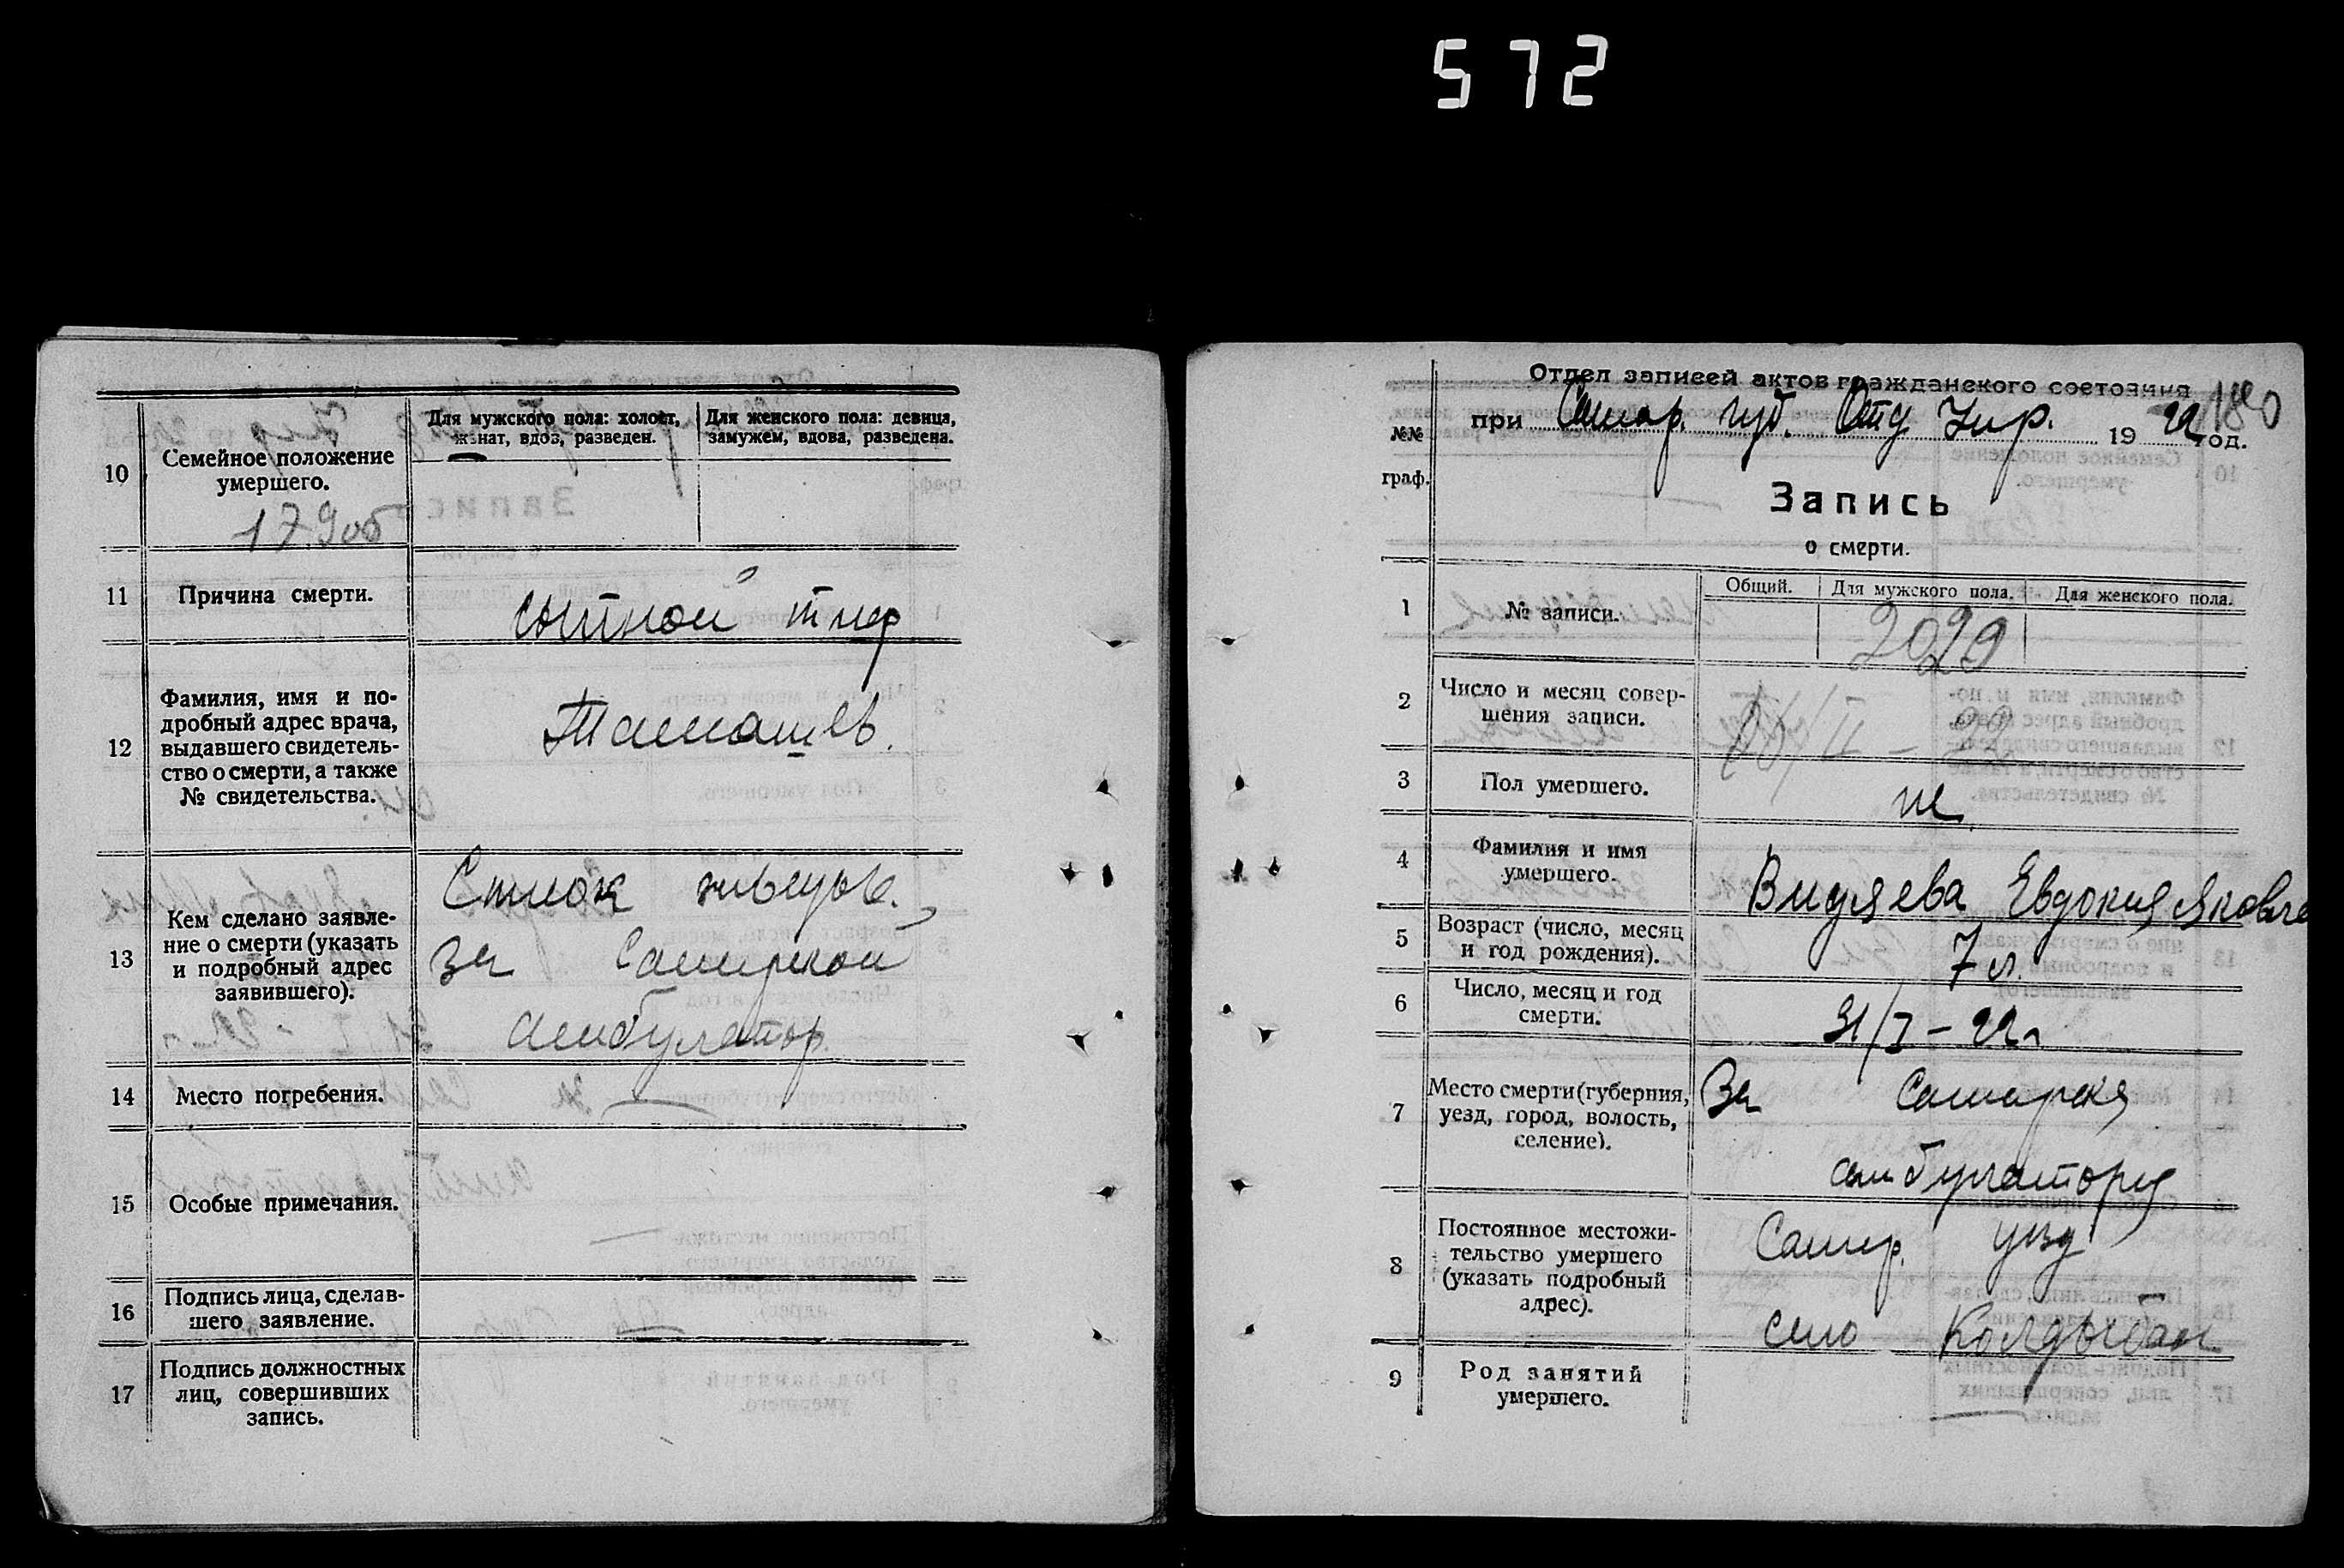 572
10
Семейное положение
умершего.
179 об
Для мужского пола: холост,
женат, вдов, разведен.
Для женского пола: девица,
замужем, вдова, разведена.
11
Причина смерти.
сыпной тиф
12
Фамилия, имя и по-
дробный адрес врача,
выдавшего свидетель-
ство о смерти, а также
№ свидетельства.
13
Кем сделано заявле-
ние о смерти (указать
и подробный адрес
заявившего).
За Самарской
амбулатор.
14
Место погребения.
15
Особые примечания.
16
Подпись лица, сделав-
шего заявление.
17
Подпись должностных
лиц, совершивших
запись.
180
Отдел записей актов гражданского состояния
при Самар. губ. Отд Упр. 1922 год.
№№
граф.
Запись
о смерти.
1
№ записи.
Общий.
Для мужского пола.
Для женского пола.
2029
2
Число и месяц совер-
шения записи.
3
Пол умершего.
ж.
4
Фамилия и имя
умершего.
Видяева Евдокия Яковле
5
Возраст (число, месяц
и год рождения).
7 л.
6
Число, месяц и год
смерти.
31/I – 22 г
7
Место смерти (губерния,
уезд, город, волость,
селение).
За Самарская
амбулатория
8
Постоянное местожи-
тельство умершего
(указать подробный
адрес).
Самар. уезд
село Колдыбан
9
Род занятий
умершего.